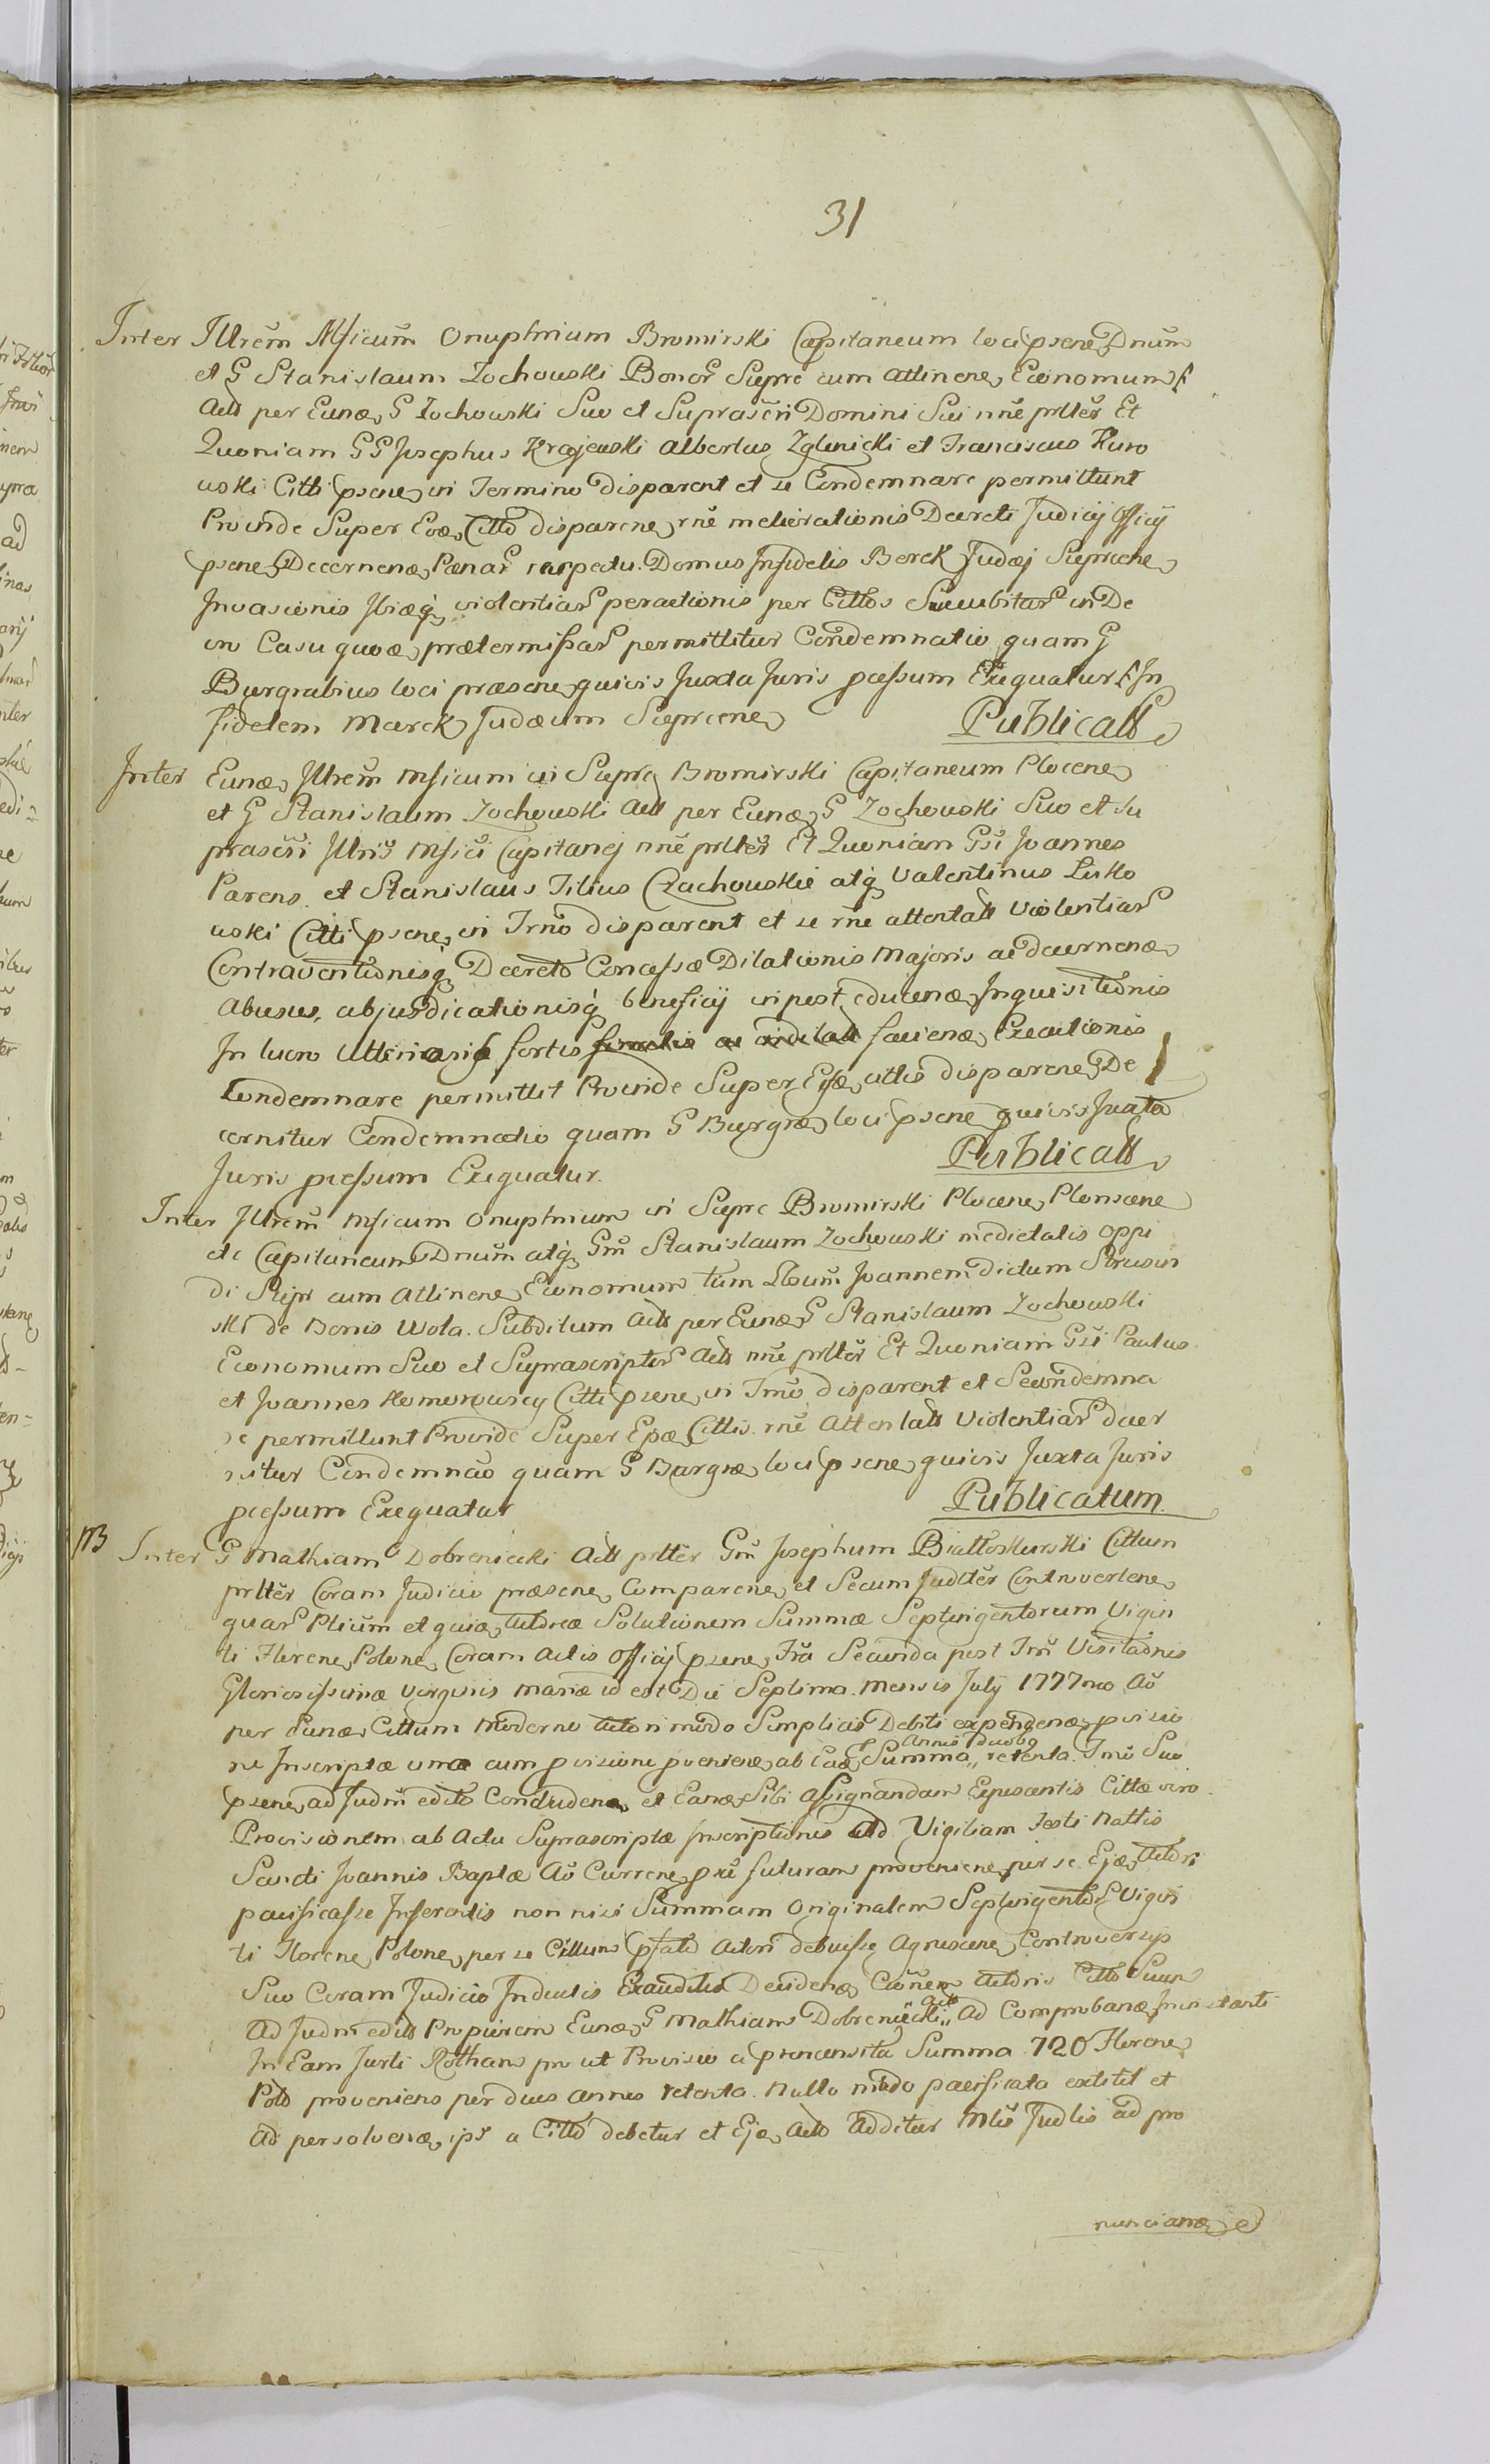 31
Inter Illrem Mficum Onuphrium Bromirski Capitaneum loci psene Dnum
et G Stanislaum Zochowski Bonor Sieprc cum attinen Economum
Actt per Eund G Zochowski Suo et Suprascri Domini Sui nne prltter Et
Quoniam GG Josephus Krajewski Albertus Zglinicki et Franciscus Kuro
wski Citti psene in Termino disparent et se Condemnare permittunt
Proinde Super Eosd Citto disparen rne meliorationis Decreti Judicij Officij
psene Decernen Pœnar respectu Domus Infidelis Berek Judæj Sieprcene
Invasionis Ibiæq violentiar peractionis per Cittos Sucubitar in De
in Casu quoæ prætermissar permittitur Condemnatio quam G
Burgrabius loci præsene quivis Juxta Juris pcessum Exequatur In
fidelem Marek Judæum Sieprcene Publicatt
Inter Eund Illrem Mficum in Sieprc Bromirski Capitaneum Plocene
et G Stanislaum Zochowski Actt per Eund G Zochowski Suo et Su
prascri Illris Mfici Capitanej nne prltter Et Quoniam Gsi Joannes
Parens et Stanislaus Filius Czachowskie atq Valentinus Lisko
wski Citti psene in Trno disparent et se rne attentatt Violentiar
Contraventionisq Decreto Concessæ Dilationis Majoris ac decernen
Abusus, abjurdicationisq beneficij in post educen Inquisitionis
In lucro Ulterioris fortis finalis ac ardilatt faciend Executionis
Condemnare permittit Proinde Super Ejsd cittis disparen De
cernitur Condemnatio quam G Burgra loci psene quivis Juxta
Juris pcessum Exequatur. Publicatt
Inter Illrem Mficum Onuphrium in Sieprc Bromirski Plocene Plonscene
etc Capitaneum Dnum atq Gm Stanislaum Zochowski medietatis oppi
di Siepr cum Attinen Economum tum Lbum Joannem dictum Strusin
ski de Bonis Wola Subditum Actt per Eund G Stanislaum Zochowski
Economum Suo et Suprascriptor Actt nne prltter Et Quoniam Gsi Paulus
et Joannes Komorowscy Citti psene in Tmo disparent et Se Condemna
re permittunt Proinde Super Eosd Cittis rne Attentatt Violentiar decer
nitur Condemnao quam G Burgra loci psene quivis Juxta Juris
pcessum Exequatur Publicatum
NB Inter G Mathiam Dobrenicki Actt prltter Gm Josephum Białloskurski Cittum
prltter Coram Judicio præsene Comparen et Secum Judltter Controverten
quar Plium et quia Actoreæ Solutionem Summæ Septingentorum Vigin
ti Floren Polone Coram Actis Officij psene Fra Secunda post Fm Visitaonis
Gloriosissimæ Virginis Mariæ id est Die Septima Mensis Julij 1777mo Ao
per Eund Cittum Moderno Actori modo Simplicis Debiti expenden pvisio
ne Inscriptæ una cum pvisione pvenien ab Ead Summa Annis duobq retenta Tmo Suo
psene ad Judm edito Concluden et Eand Sibi assignandam Exposcentis Cittæ vero
Provisionem ab Actu Suprascriptæ Inscriptionis Ad Vigiliam Festi Nattis
Sancti Joannis Baptæ Ao Curren pxe futuram provenien per se Ejd Actori
pacificasse Inferentis non nisi Summam Originalem Septingentor Vigin
ti Floren Polone per se Cittum pfato Actori debuisse Agnoscen Controversijs
Suo Coram Judicio Inductis Exauditis Deciden Cionem Actoris Citto Suum
Ad Judm editt Propiorem Eund G Mathiam Dobrenicki Actt Ad Comproband Juramenti
In Eam Jurti Rotham pro ut Provisio a prœcensita Summa 720 Floren
Polo proveniens per duos annos retenta Nullo modo pacificata extitit et
Ad persolvend ipsi a Citto debetur et Ejd Actt Additur Mtis Judlis ad pro
nuncian